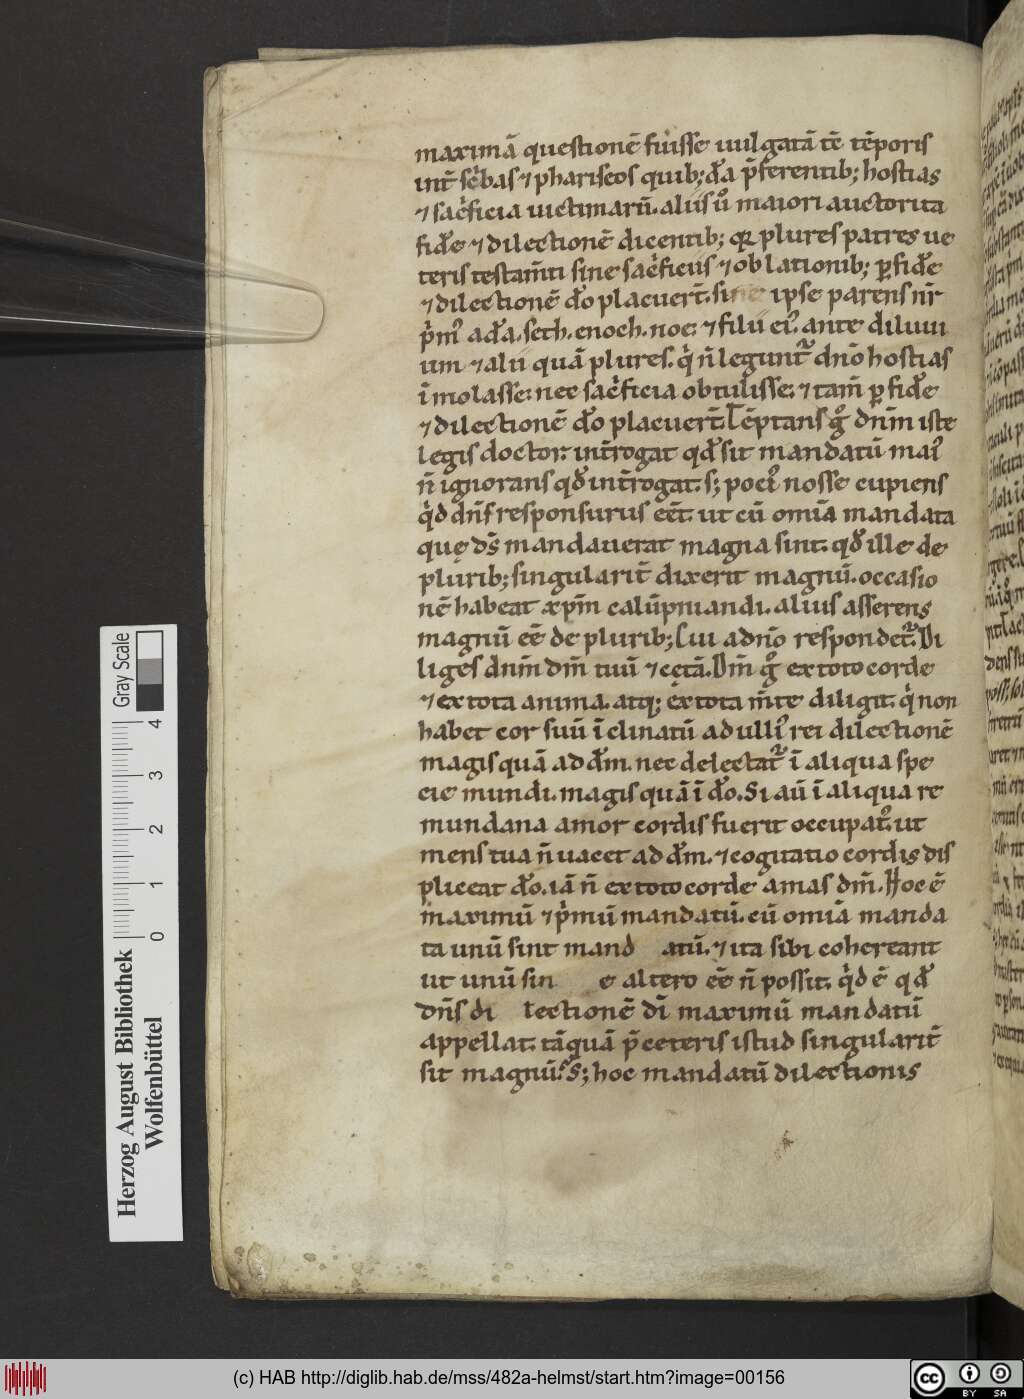 maximā questionē fuisse uulgatā tē tēporis
int̄ sc̄bas ⁊ phariseos quib; d̄a p̄ferentib; hostias
⁊ sac̄ficia uictimarū. aliis ů maiori auctorita
fidē ⁊ dilectionē dicentib; qꝛ plures patres ue
teris testam̄ti sine sac̄ficiis ⁊ oblationib; ꝑ fidē
⁊ dilectionē dō placuer̄t. sine ipse parens nr̄
p̄m᷒ adā. seth. enoch. noe. ⁊ filii ei᷒. ante diluui
um ⁊ alii quā plures. q̇ n̄ legunt᷑ dnō hostias
ī molasse. nec sac̄ficia obtulisse. ⁊ tam̄ ꝑ fidē
⁊ dilectionē dō placuer̄t. Tēptans g̊ dn̄m iste
legis doctor. int̄rogat qđ sit mandatū mai᷒
n̄ ignorans qđ int̄rogat. s; poci᷒ nosse cupiens
q̇d dn̄s responsurus eēt. ut cū omīa mandata
quę ds̄ mandauerat magna sint. qđ ille de
plurib; singularit̄ dixerit magnū. occasio
nē habeat xp̄m calūpniandi. alius asserens
magnū eē de plurib; Cui adn̄o respondet᷑. Di
liges dn̄m dm̄ tuū ⁊ cetā. Dm̄ g̊ ex toto corde
⁊ ex tota anima. atq; ex tota m̄te diligit. q̇ non
habet cor suū ī clinatū ad ulli᷒ rei dilectionē
magis quā ad dm̄. nec delectat᷑ ī aliqua spe
cie mundi. magis quā ī dō. Si aū ī aliqua re
mundana amor cordis fuerit occupat᷒. ut
mens tua n̄ uacet ad dm̄. ⁊ cogitatio cordis dis
pliceat dō. iā n̄ ex toto corde amas dm̄. Hoc ē
maximū ⁊ p̄mū mandatū. cū omīa manda
ta unū sint mand atū. ⁊ ita sibi cohereant
ut unū sin e altero eē n̄ possit. q̇d ē qđ
dn̄s di lectionē dī maximū mandatū
appellat. tāquā p̄ ceteris istud singularit̄
sit magnū. S; hoc mandatū dilectionis
Gray Scale
0 1 2 3 4
Herzog August Bibliothek
Wolfenbüttel
(c) HAB http://diglib.hab.de/mss/482a-helmst/start.htm?image=00156
cc BY SA